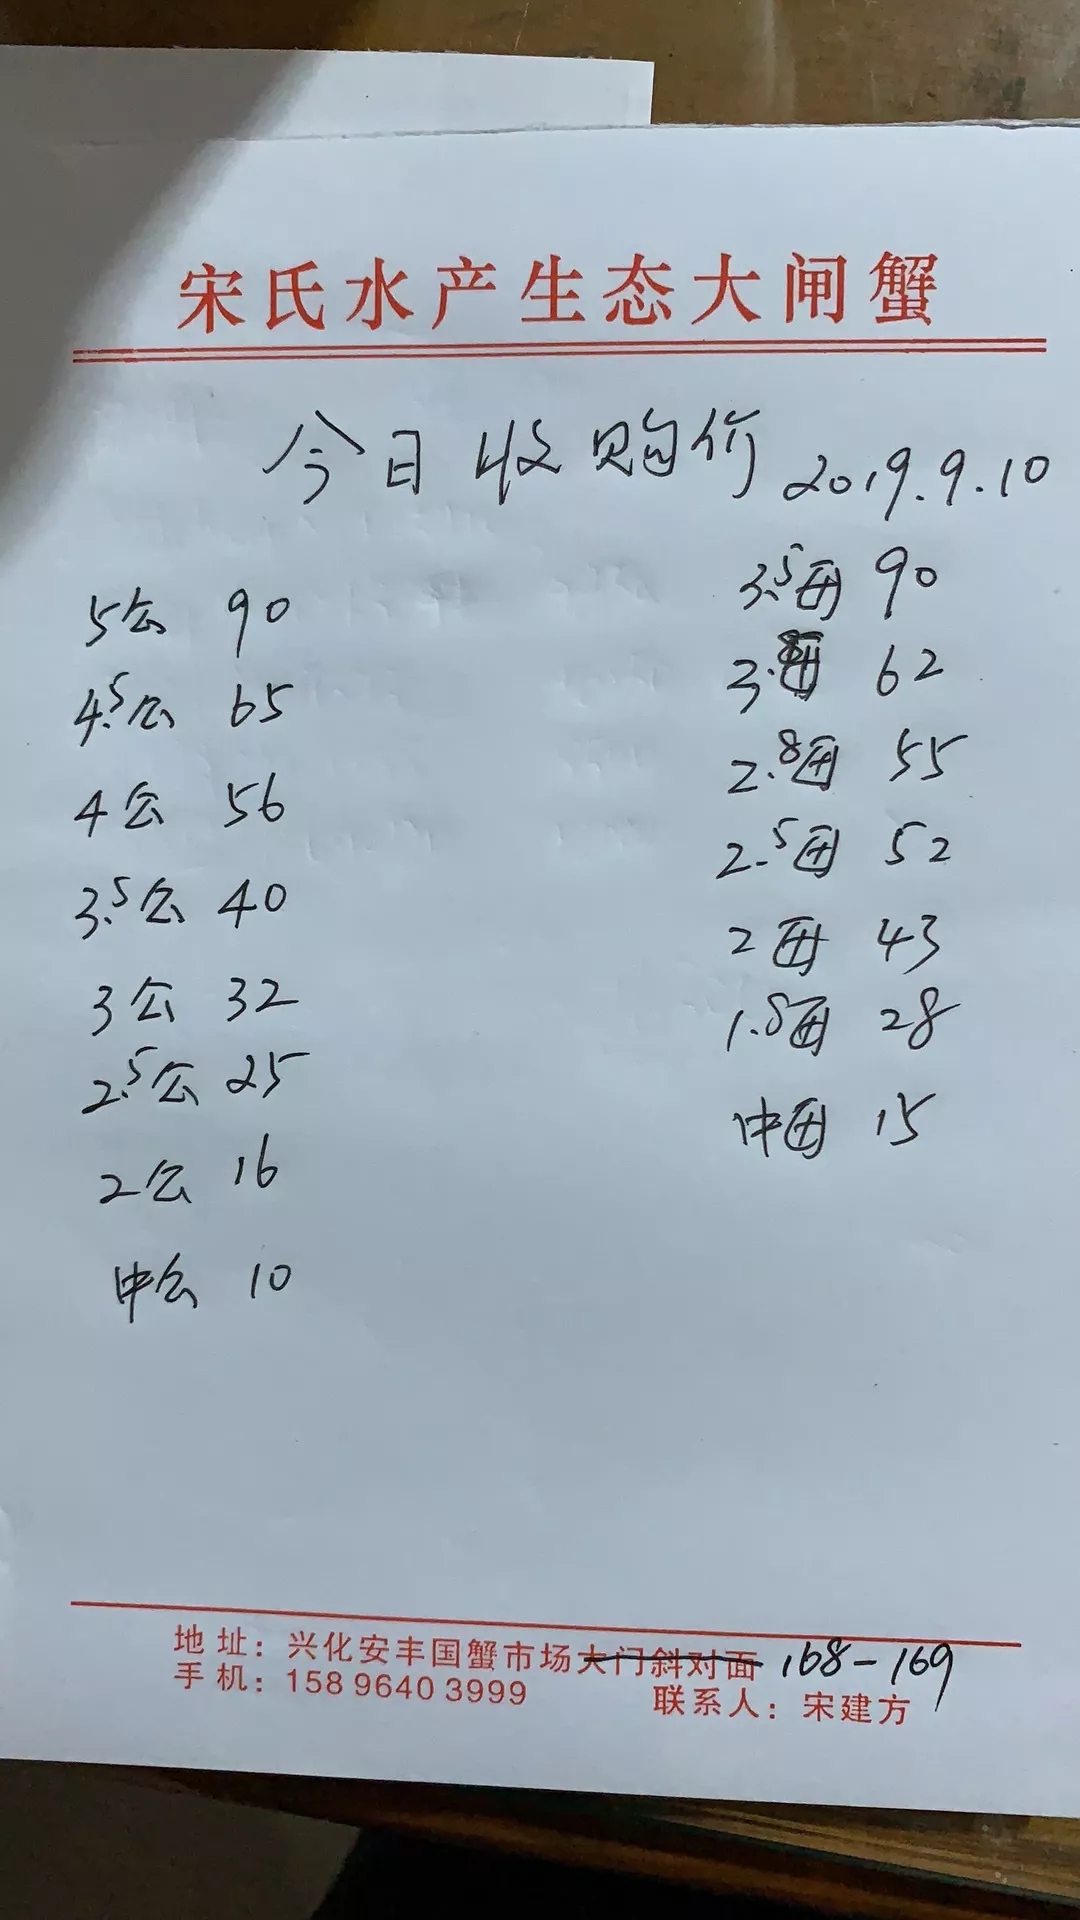 宋氏水产生态大闸蟹
今日收购价 2019.9.10
5公 90
4.5公 65
4公 56
3.5公 40
3公 32
2.5公 25
2公 16
中公 10
3.5母 90
3.母 62
2.8母 55
2.5母 52
2母 43
1.8母 28
中母 15
地址：兴化安丰国蟹市场大门斜对面 168-169
手机：158 9640 3999
联系人：宋建方